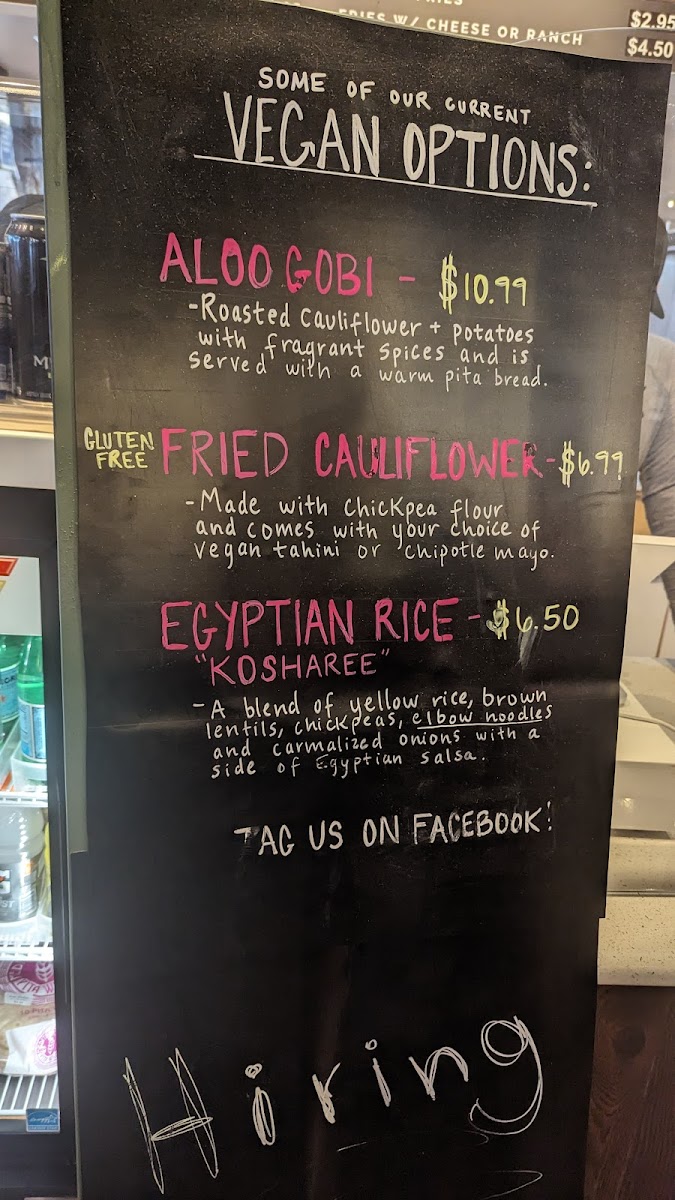 FRIES W/ CHEESE OR RANCH
$2.95
$4.50
SOME OF OUR CURRENT
VEGAN OPTIONS:
ALOO GOBI - $10.99
-Roasted Cauliflower + potatoes
with fragrant spices and is
served with a warm pita bread.
GLUTEN
FREE
FRIED CAULIFLOWER-$6.99
-Made with Chickpea flour
and comes with your choice of
vegan tahini or chipotle mayo.
EGYPTIAN RICE - $6.50
"KOSHAREE"
-A blend of yellow rice, brown
lentils, chickpeas, elbow noodles
and carmalized onions with a
side of Egyptian salsa.
TAG US ON FACEBOOK!
Hiring